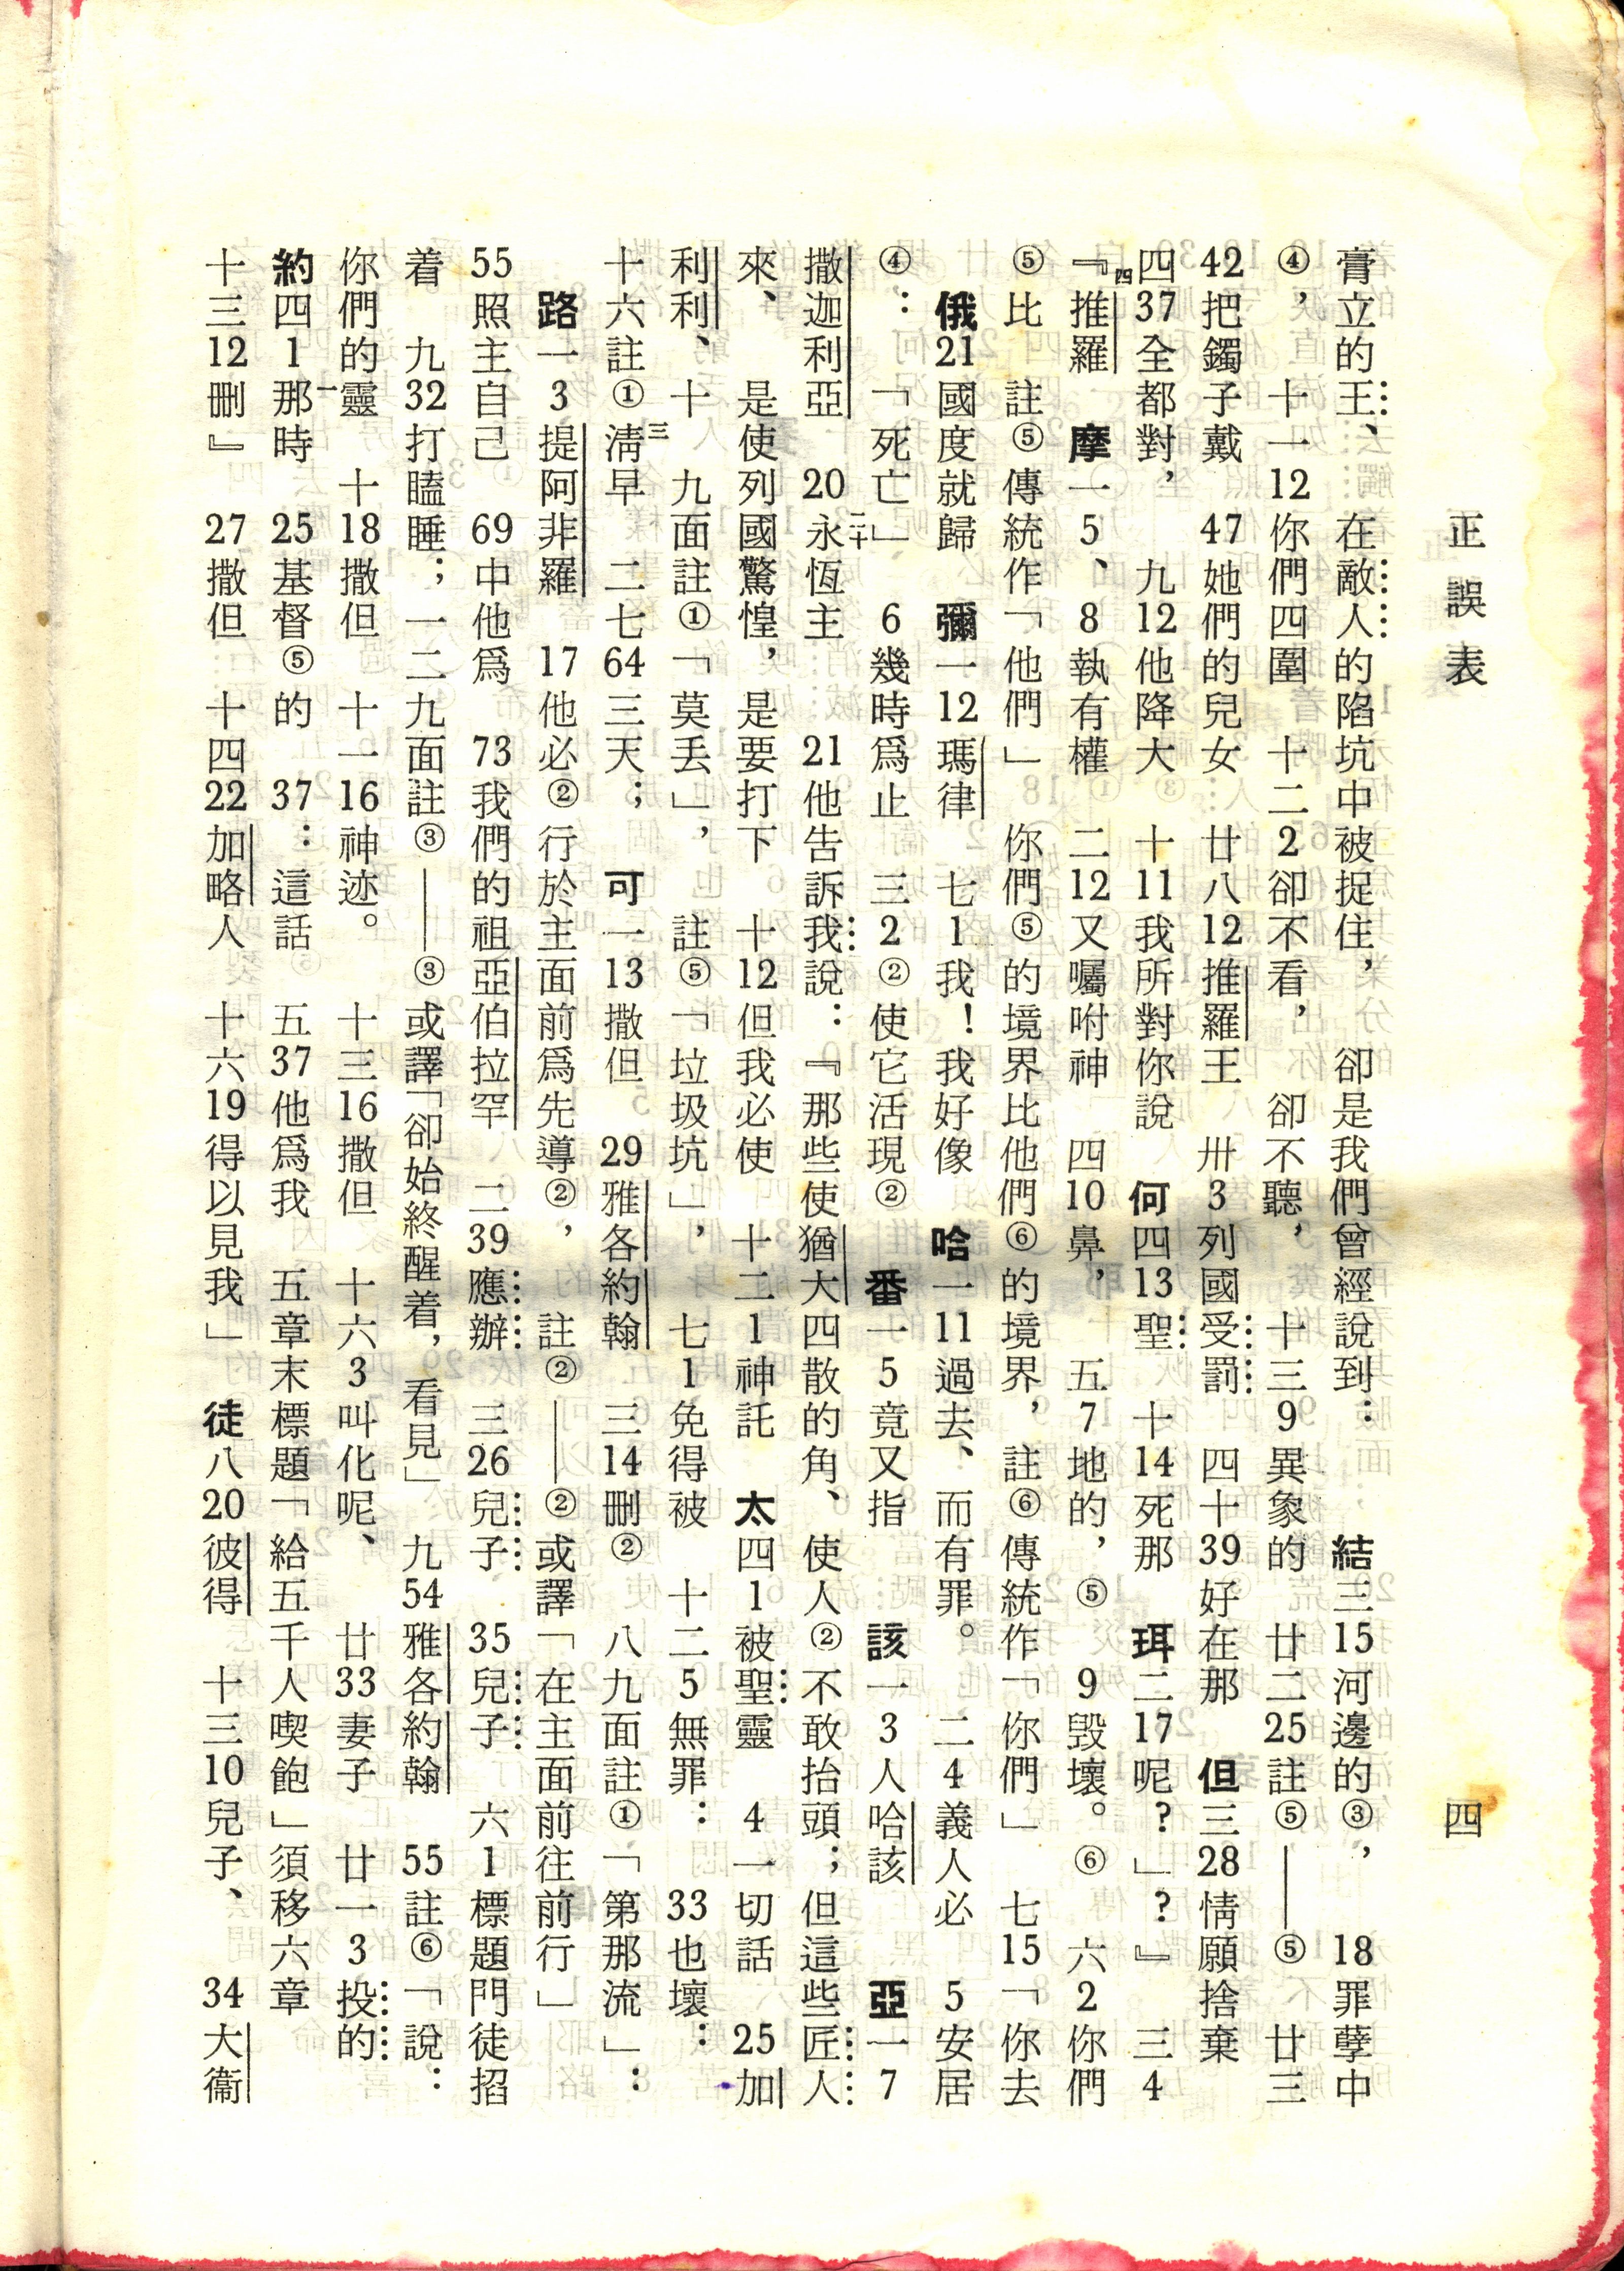 正誤表
四
膏立的王、 在敵人的陷坑中被捉住， 卻是我們曾經說到： 結三15河邊的③， 18罪孽中
④， 十一12你們四圍 十二2卻不看， 卻不聽， 十三9異象的 廿二25註⑤——⑤ 廿三
42把鐲子戴 47她們的兒女 廿八12推羅王 卅3列國受罰 四十39好在那 但三28情願捨棄
四37全都對， 九12他降大 十11我所對你說 何四13聖 十14死那 珥二17呢？」？』 三4
『四推羅 摩一5、 8執有權 二12又囑咐神 四10鼻， 五7地的，⑤ 9毀壞。⑥ 六2你們
⑤比 註⑤傳統作「他們」 你們⑤的境界比他們⑥的境界， 註⑥傳統作「你們」 七15「你去
俄21國度就歸 彌一12瑪律 七1我！我好像 哈一11過去、而有罪。 二4義人必 5安居
④： 「死亡」 6幾時爲止 三2②使它活現② 番一5竟又指 該一3人哈該 亞一7
撒迦利亞 20二十永恆主 21他告訴我說：『那些使猶大四散的角、使人②不敢抬頭；但這些匠人
來、 是使列國驚惶，是要打下 十12但我必使 十二1神託 太四1被聖靈 4一切話 25加
利利、 十九面註①「莫丢」， 註⑤「垃圾坑」， 七1免得被 十二5無罪： 33也壞：
十六註①三淸早 二七64三天； 可一13撒但 29雅各約翰 三14刪② 八九面註①「第那流」：
路一3提阿非羅 17他必②行於主面前爲先導②， 註②——②或譯「在主面前往前行」
55照主自己 69中他爲 73我們的祖亞伯拉罕 二39應辦 三26兒子、 35兒子 六1標題門徒掐
着 九32打瞌睡； 一二九面註③——③或譯「卻始終醒着，看見」 九54雅各約翰 55註⑥「說：
你們的一靈 十18撒但 十一16神迹。 十三16撒但 十六3叫化呢、 廿33妻子 廿一3投的
約四1那時 25基督⑤的 37：這話 五37他爲我 五章末標題「給五千人喫飽」須移六章
十三12刪』 27撒但 十四22加略人 十六19得以見我」 徒八20彼得 十三10兒子、 34大衞